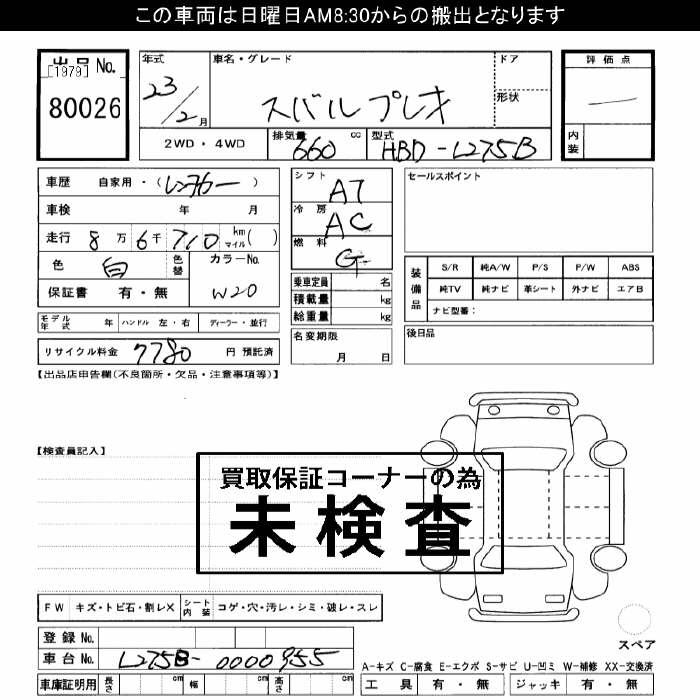 この車両は日曜日AM8:30からの搬出となります
出品No.
[1979]
80026
年式 車名・グレード ドア
23/2月 スバルプレオ 形状
評価点
内装
2WD・4WD 排気量 660 cc 型式 HBD-L275B
車歴 自家用・(レンタカー)
車検 年 月
走行 8万6千710 km マイル( )
色 白 色替 カラーNo. W20
保証書 有・無
シフト AT
冷房 AC
燃料 G
乗車定員 名
積載量 kg
総重量 kg
セールスポイント
装備品 S/R 純A/W P/S P/W ABS
純TV 純ナビ 革シート 外ナビ エアB
ナビ型番:
モデル年式 年 ハンドル 左・右 ディーラー・並行
リサイクル料金 7780 円 預託済
名変期限
月 日
後日品
【出品店申告欄(不良箇所・欠品・注意事項等)】
【検査員記入】
買取保証コーナーの為
未検査
FW キズ・トビ石・割レX シート内装 コゲ・穴・汚レ・シミ・破レ・スレ
登録No.
車台No. L275B-0000955
車庫証明用 長さ cm 幅 cm 高さ cm
スペア
A-キズ C-腐食 E-エクボ S-サビ U-凹ミ W-補修 XX-交換済
工具 有・無 ジャッキ 有・無